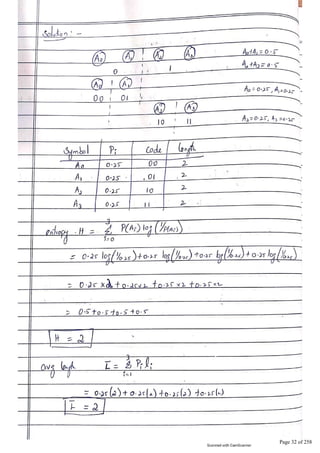 Solution: -
A0 A1 A2 A3
A0+A1 = 0.5
A2+A3 = 0.5
0 1
A0 A1
A0 = 0.25, A1 = 0.25
00 01
A2 A3
10 11
A2 = 0.25, A3 = 0.25
Symbol Pi Code length
A0 0.25 00 2
A1 0.25 01 2
A2 0.25 10 2
A3 0.25 11 2
entropy . H = 3 Σ i=0 P(Ai) log (1/P(Ai))
= 0.25 log(1/0.25) + 0.25 log(1/0.25) + 0.25 log(1/0.25) + 0.25 log(1/0.25)
= 0.25 x2 + 0.25x2 + 0.25 x2 + 0.25x2
= 0.5 + 0.5 + 0.5 + 0.5
H = 2
avg length L = 3 Σ i=1 Pi li
= 0.25(2) + 0.25(2) + 0.25(2) + 0.25(2)
L = 2
Page 32 of 258
Scanned with CamScanner